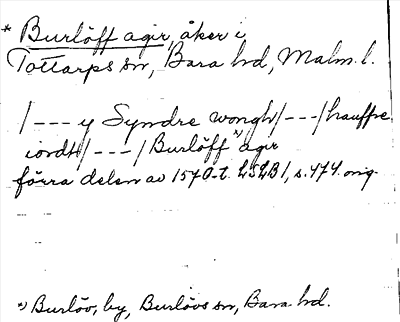 * Burlöff agir, åker i
Tottarps sn, Bara hd, Malm. l.
/---y Syndre wongh/---/hauffre
iordt/---/Burlöff *) agir
förra delen av 1570-t. LSLB1, s. 474. orig.
*) Burlöv, by, Burlövs sn, Bara hd.